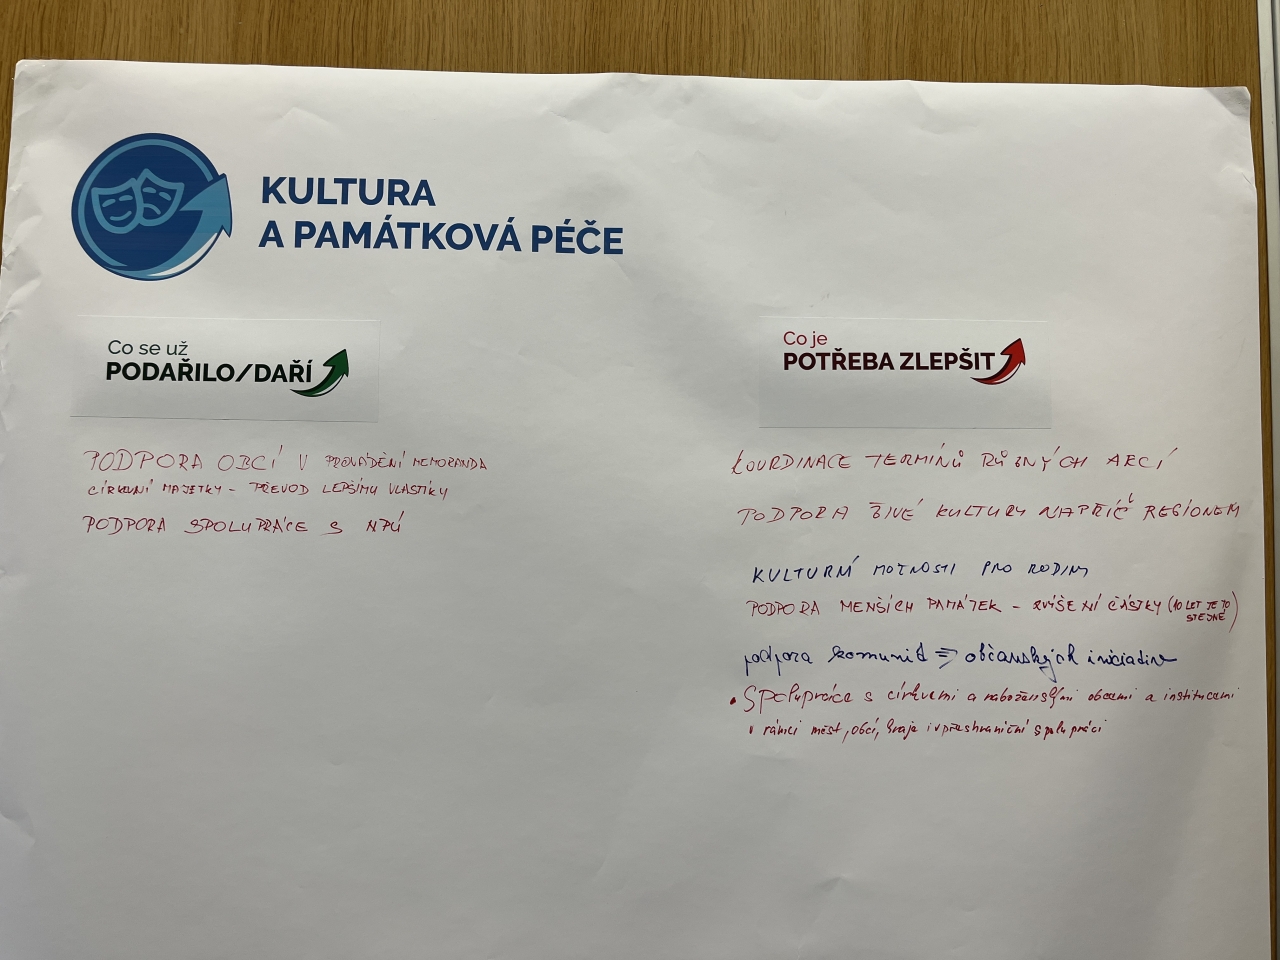 KULTURA
A PAMÁTKOVÁ PÉČE
Co se už
PODAŘILO/DAŘÍ
PODPORA OBCÍ V PROVÁDĚNÍ MEMORANDA
CÍRKEVNÍ MAJETKY - PŘEVOD LEPŠÍMU VLASTÍKY
PODPORA SPOLUPRÁCE S NPÚ
Co je
POTŘEBA ZLEPŠIT
KOORDINACE TERMÍNŮ RŮZNÝCH AKCÍ
PODPORA ŽIVÉ KULTURY NAPŘÍČ REGIONEM
KULTURNÍ MOŽNOSTI PRO RODINY
PODPORA MENŠÍCH PAMÁTEK - ZVÝŠENÍ ČÁSTKY (10 LET JE TO
STEJNÉ)
podpora komunit => občanských iniciativ
• Spolupráce s církvemi a náboženskými obcemi a institucemi
v rámci měst, obcí, kraje i v přeshraniční spolupráci